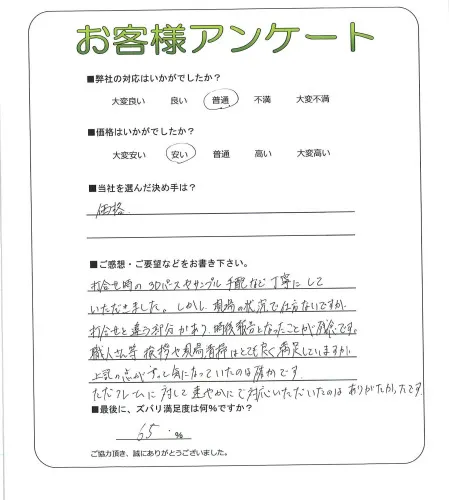 お客様アンケート
■弊社の対応はいかがでしたか?
大変良い 良い 普通 不満 大変不満
■価格はいかがでしたか?
大変安い 安い 普通 高い 大変高い
■当社を選んだ決め手は?
価格
■ご感想・ご要望などをお書き下さい。
打合せ時の3Dパースやサンプル手配など丁寧にして
いただきました。しかし、現場の状況で仕方ないですが、
打合せと違う部分があり、事後報告となったことが残念です。
職人さん等 挨拶や現場清掃はとても良く満足していますが、
上記の点がずっと気になっていたのは確かです。
ただクレームに対して速やかにで対応いただいたのはありがたかったです。
■最後に、ズバリ満足度は何%ですか?
65.%
ご協力頂き、誠にありがとうございました。